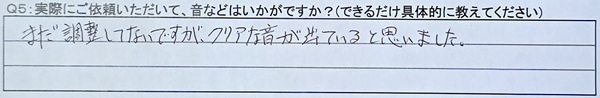 Q5:実際にご依頼いただいて、音などはいかがですか？(できるだけ具体的に教えてください)
まだ調整してないですが、クリアな音が出ていると思いました。